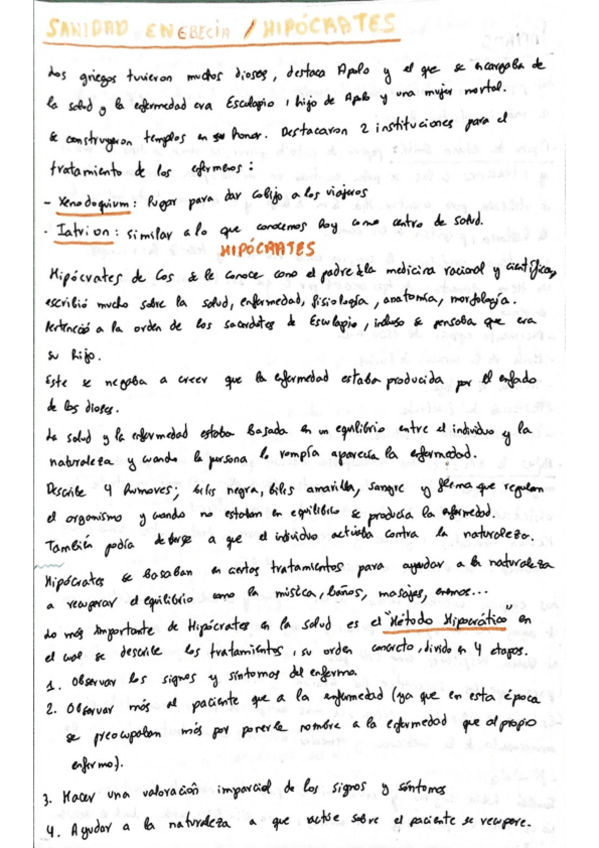 SANIDAD EN GRECIA / HIPÓCRATES
Los griegos tuvieron muchos dioses, destaca Apolo y el que se encargaba de
la salud y la enfermedad era Esculapio, hijo de Apolo y una mujer mortal.
Se construyeron templos en su honor. Destacaron 2 instituciones para el
tratamiento de los enfermos:
- Xenodoquium: lugar para dar cobijo a los viajeros
- Iatrion: similar a lo que conocemos hoy como centro de salud.
HIPÓCRATES
Hipócrates de Cos se le conoce como el padre de la medicina racional y científica,
escribió mucho sobre la salud, enfermedad, fisiología, anatomía, morfología.
Perteneció a la orden de los sacerdotes de Esculapio, incluso se pensaba que era
su hijo.
Este se negaba a creer que la enfermedad estaba producida por el enfado
de los dioses.
La salud y la enfermedad estaba basada en un equilibrio entre el individuo y la
naturaleza y cuando la persona lo rompía aparecía la enfermedad.
Describe 4 humores; bilis negra, bilis amarilla, sangre y flema que regulan
el organismo y cuando no estaban en equilibrio se producía la enfermedad.
También podía deberse a que el individuo actuaba contra la naturaleza.
Hipócrates se basaban en ciertos tratamientos para ayudar a la naturaleza
a recuperar el equilibrio como la música, baños, masajes, enemas...
Lo más importante de Hipócrates en la salud es el "Método Hipocrático" en
el cual se describe los tratamientos, su orden concreto, divido en 4 etapas.
1. Observar los signos y síntomas del enfermo.
2. Observar más al paciente que a la enfermedad (ya que en esta época
se preocupaban más por ponerle nombre a la enfermedad que al propio
enfermo).
3. Hacer una valoración imparcial de los signos y síntomas
4. Ayudar a la naturaleza a que actúe sobre el paciente se recupere.